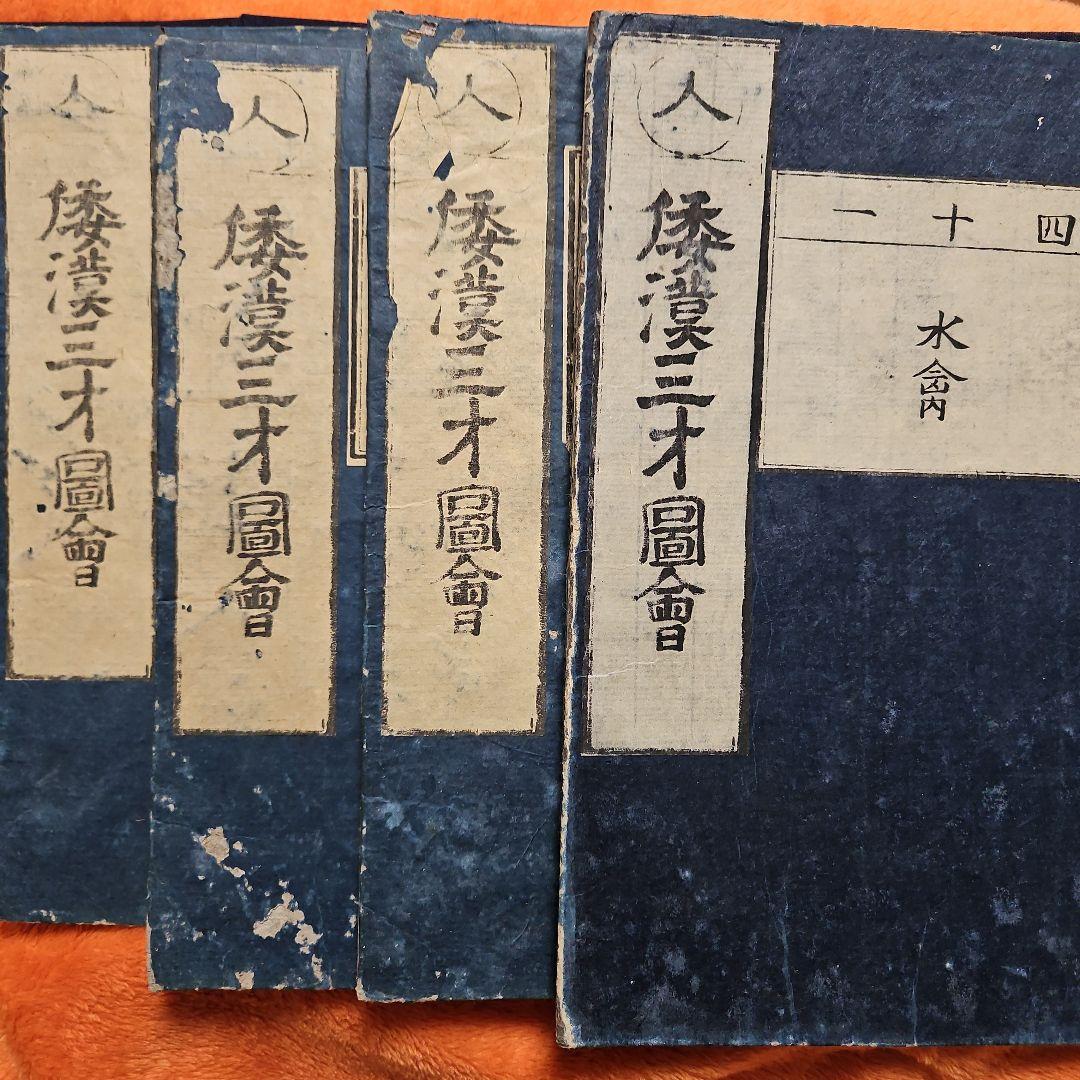 四十一
水禽
人
倭漢三才圖會
人
倭漢三才圖會
人
倭漢三才圖會
人
倭漢三才圖會